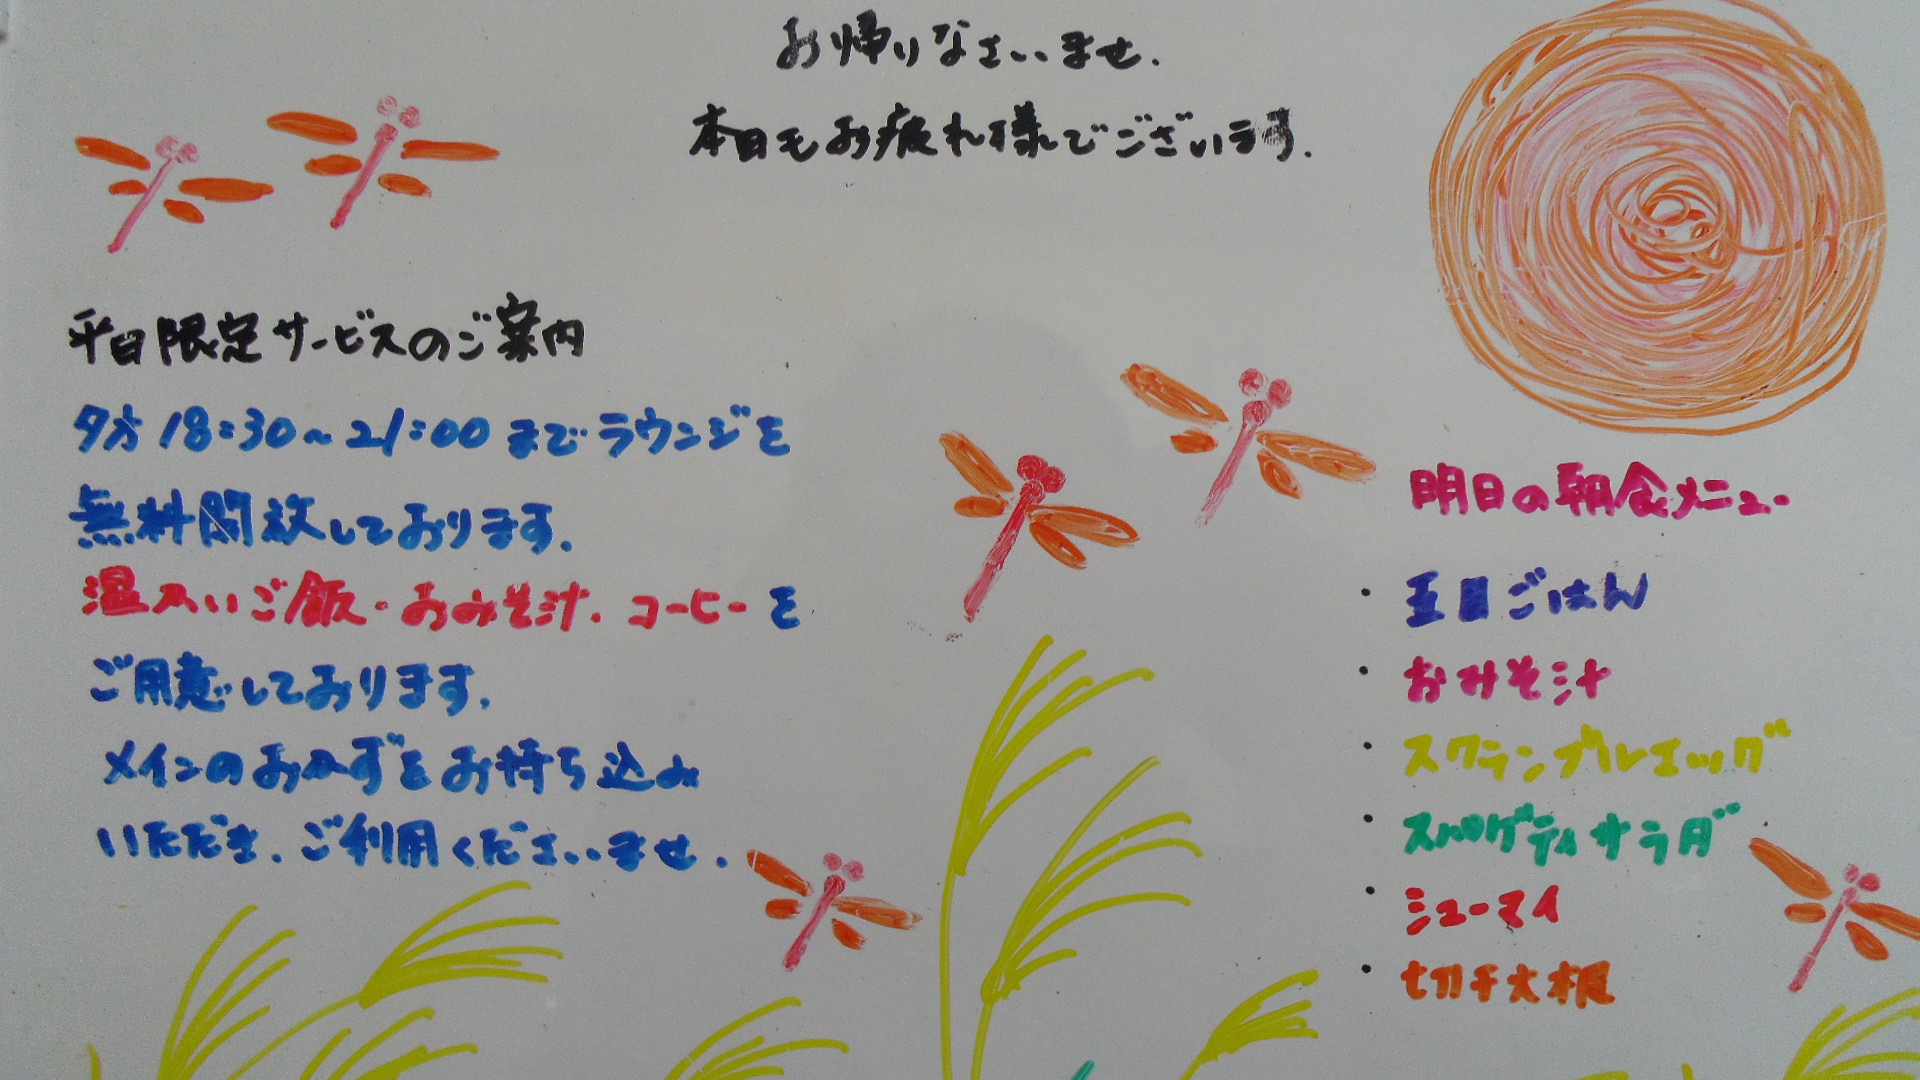 お帰りなさいませ.
本日もお疲れ様でございます.
平日限定サービスのご案内
夕方18:30~21:00までラウンジを
無料開放しております.
温かいご飯・おみそ汁.コーヒーを
ご用意しております.
メインのおかずをお持ち込み
いただき.ご利用くださいませ.
明日の朝食メニュー
・五目ごはん
・おみそ汁
・スクランブルエッグ
・スパゲティサラダ
・シューマイ
・切干大根